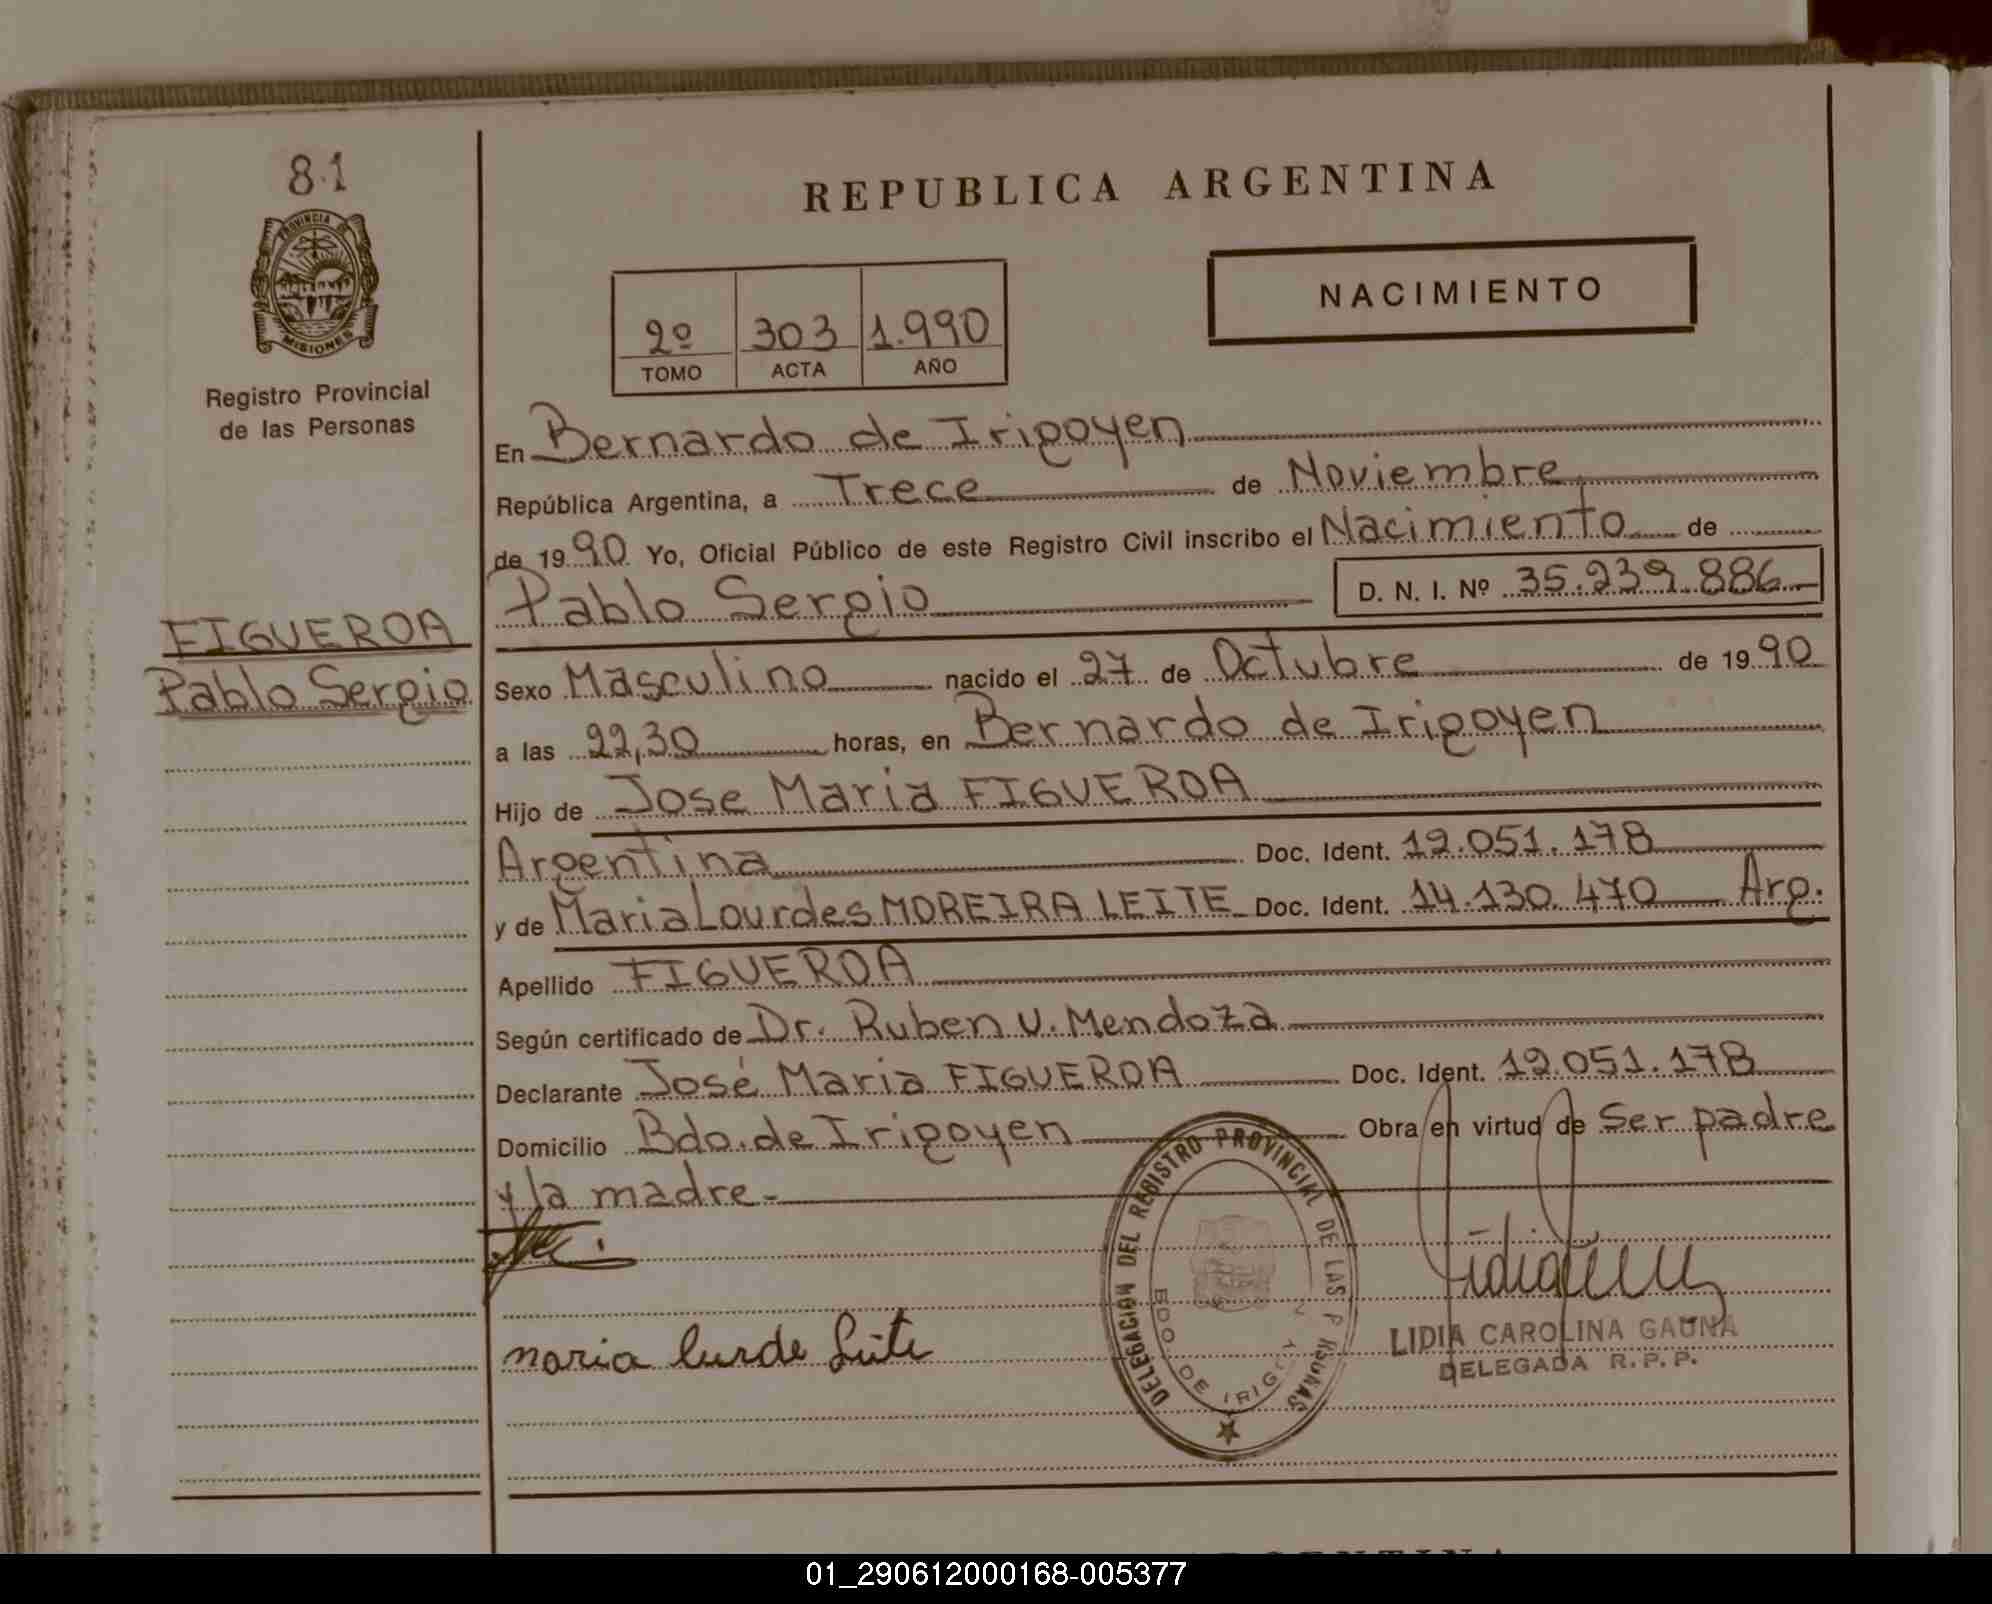 81
PROVINCIA DE
MISIONES
Registro Provincial
de las Personas
FIGUEROA
Pablo Sergio
REPUBLICA ARGENTINA
NACIMIENTO
2º 303 1.990
TOMO ACTA AÑO
En Bernardo de Irigoyen
República Argentina, a Trece de Noviembre
de 1990 Yo, Oficial Público de este Registro Civil inscribo el Nacimiento de
Pablo Sergio D. N. I. Nº 35.239.886
Sexo Masculino nacido el 27 de Octubre de 1990
a las 22,30 horas, en Bernardo de Irigoyen
Hijo de Jose Maria FIGUEROA
Argentina Doc. Ident. 12.051.178
y de Maria Lourdes MOREIRA LEITE Doc. Ident. 14.130.470 Arg.
Apellido FIGUEROA
Según certificado de Dr. Ruben V. Mendoza
Declarante José Maria FIGUEROA Doc. Ident. 12.051.178
Domicilio Bdo. de Irigoyen Obra en virtud de Ser padre
y la madre.-
DELEGACION DEL REGISTRO PROVINCIAL DE LAS P RSONAS
BDO. DE IRIG
maria lurde Leite
LIDIA CAROLINA GAUNA
DELEGADA R. P. P.
01_290612000168-005377